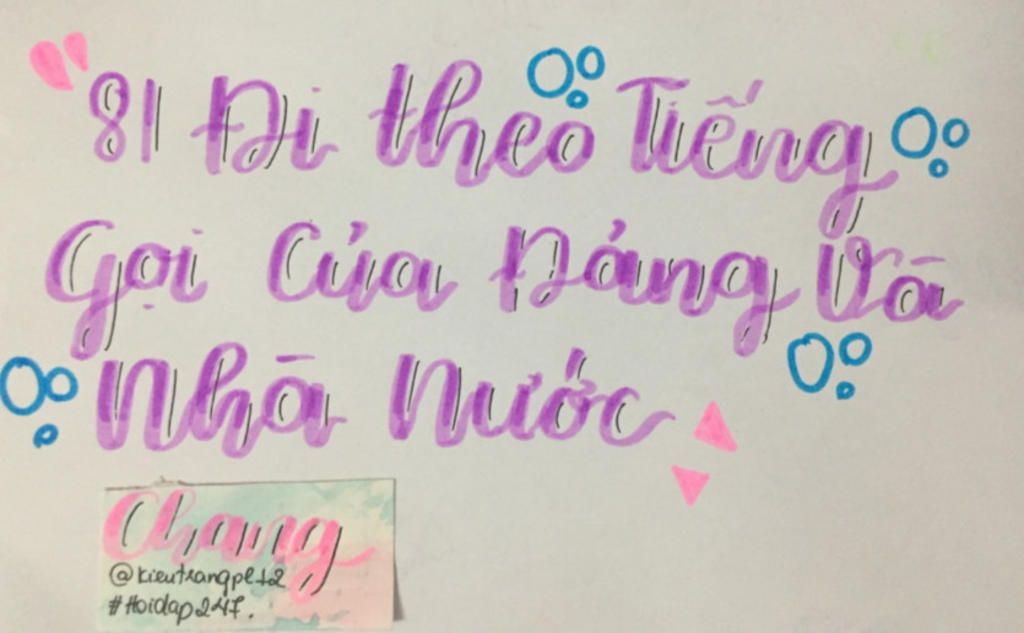 81 Đi theo Tiếng
Gọi Của Đảng Và
Nhà Nước
Chang
@kieutrangpl12
#Hoidap247.